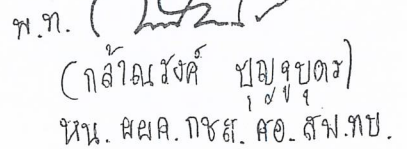 พ.ท. (
(กล้าณรงค์ ปุญจุบุตร)
หน. ผผค. กชส. ศอ. สพ.ทบ.